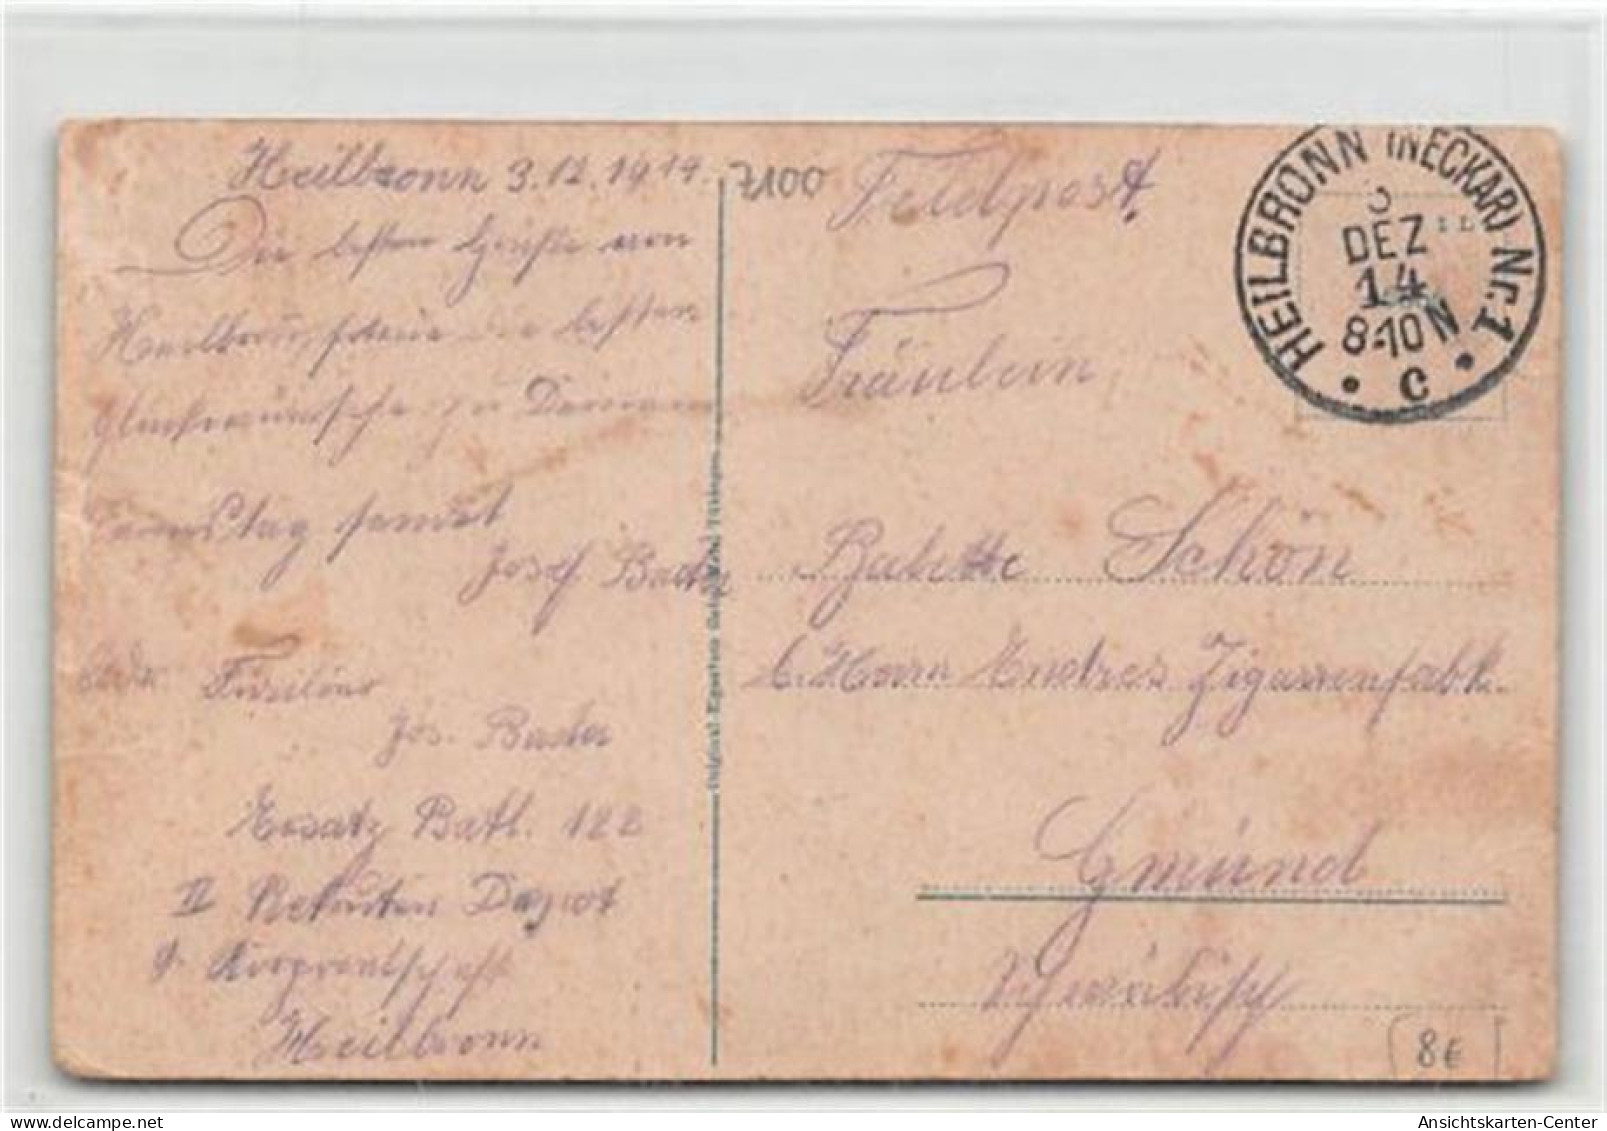 Heilbronn 3.12.1914.
Die besten Grüße von
Heilbronn, sowie die besten
Glückwünsche zu Deinem
Namstag sendet
Josef Bader
Füsilier
Jos. Bader
Ersatz Batl. 122
II Rekruten Depot
Korporalschaft
Heilbronn
7100
Feldpost.
Fräulein
Babette Schön
b. Herrn Endres Zigarrenfabk.
Gmünd
Schwäbisch
HEILBRONN (NECKAR) Nr. 1
3
DEZ
14
8-10 N
* c *
8€
www.delcampe.net
Ansichtskarten-Center